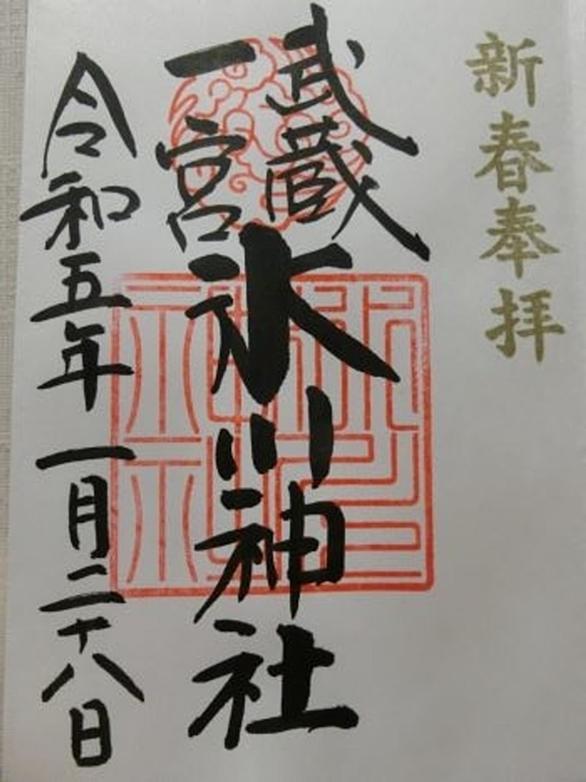 新春奉拝
武蔵
一宮
氷川神社
令和五年一月二十八日